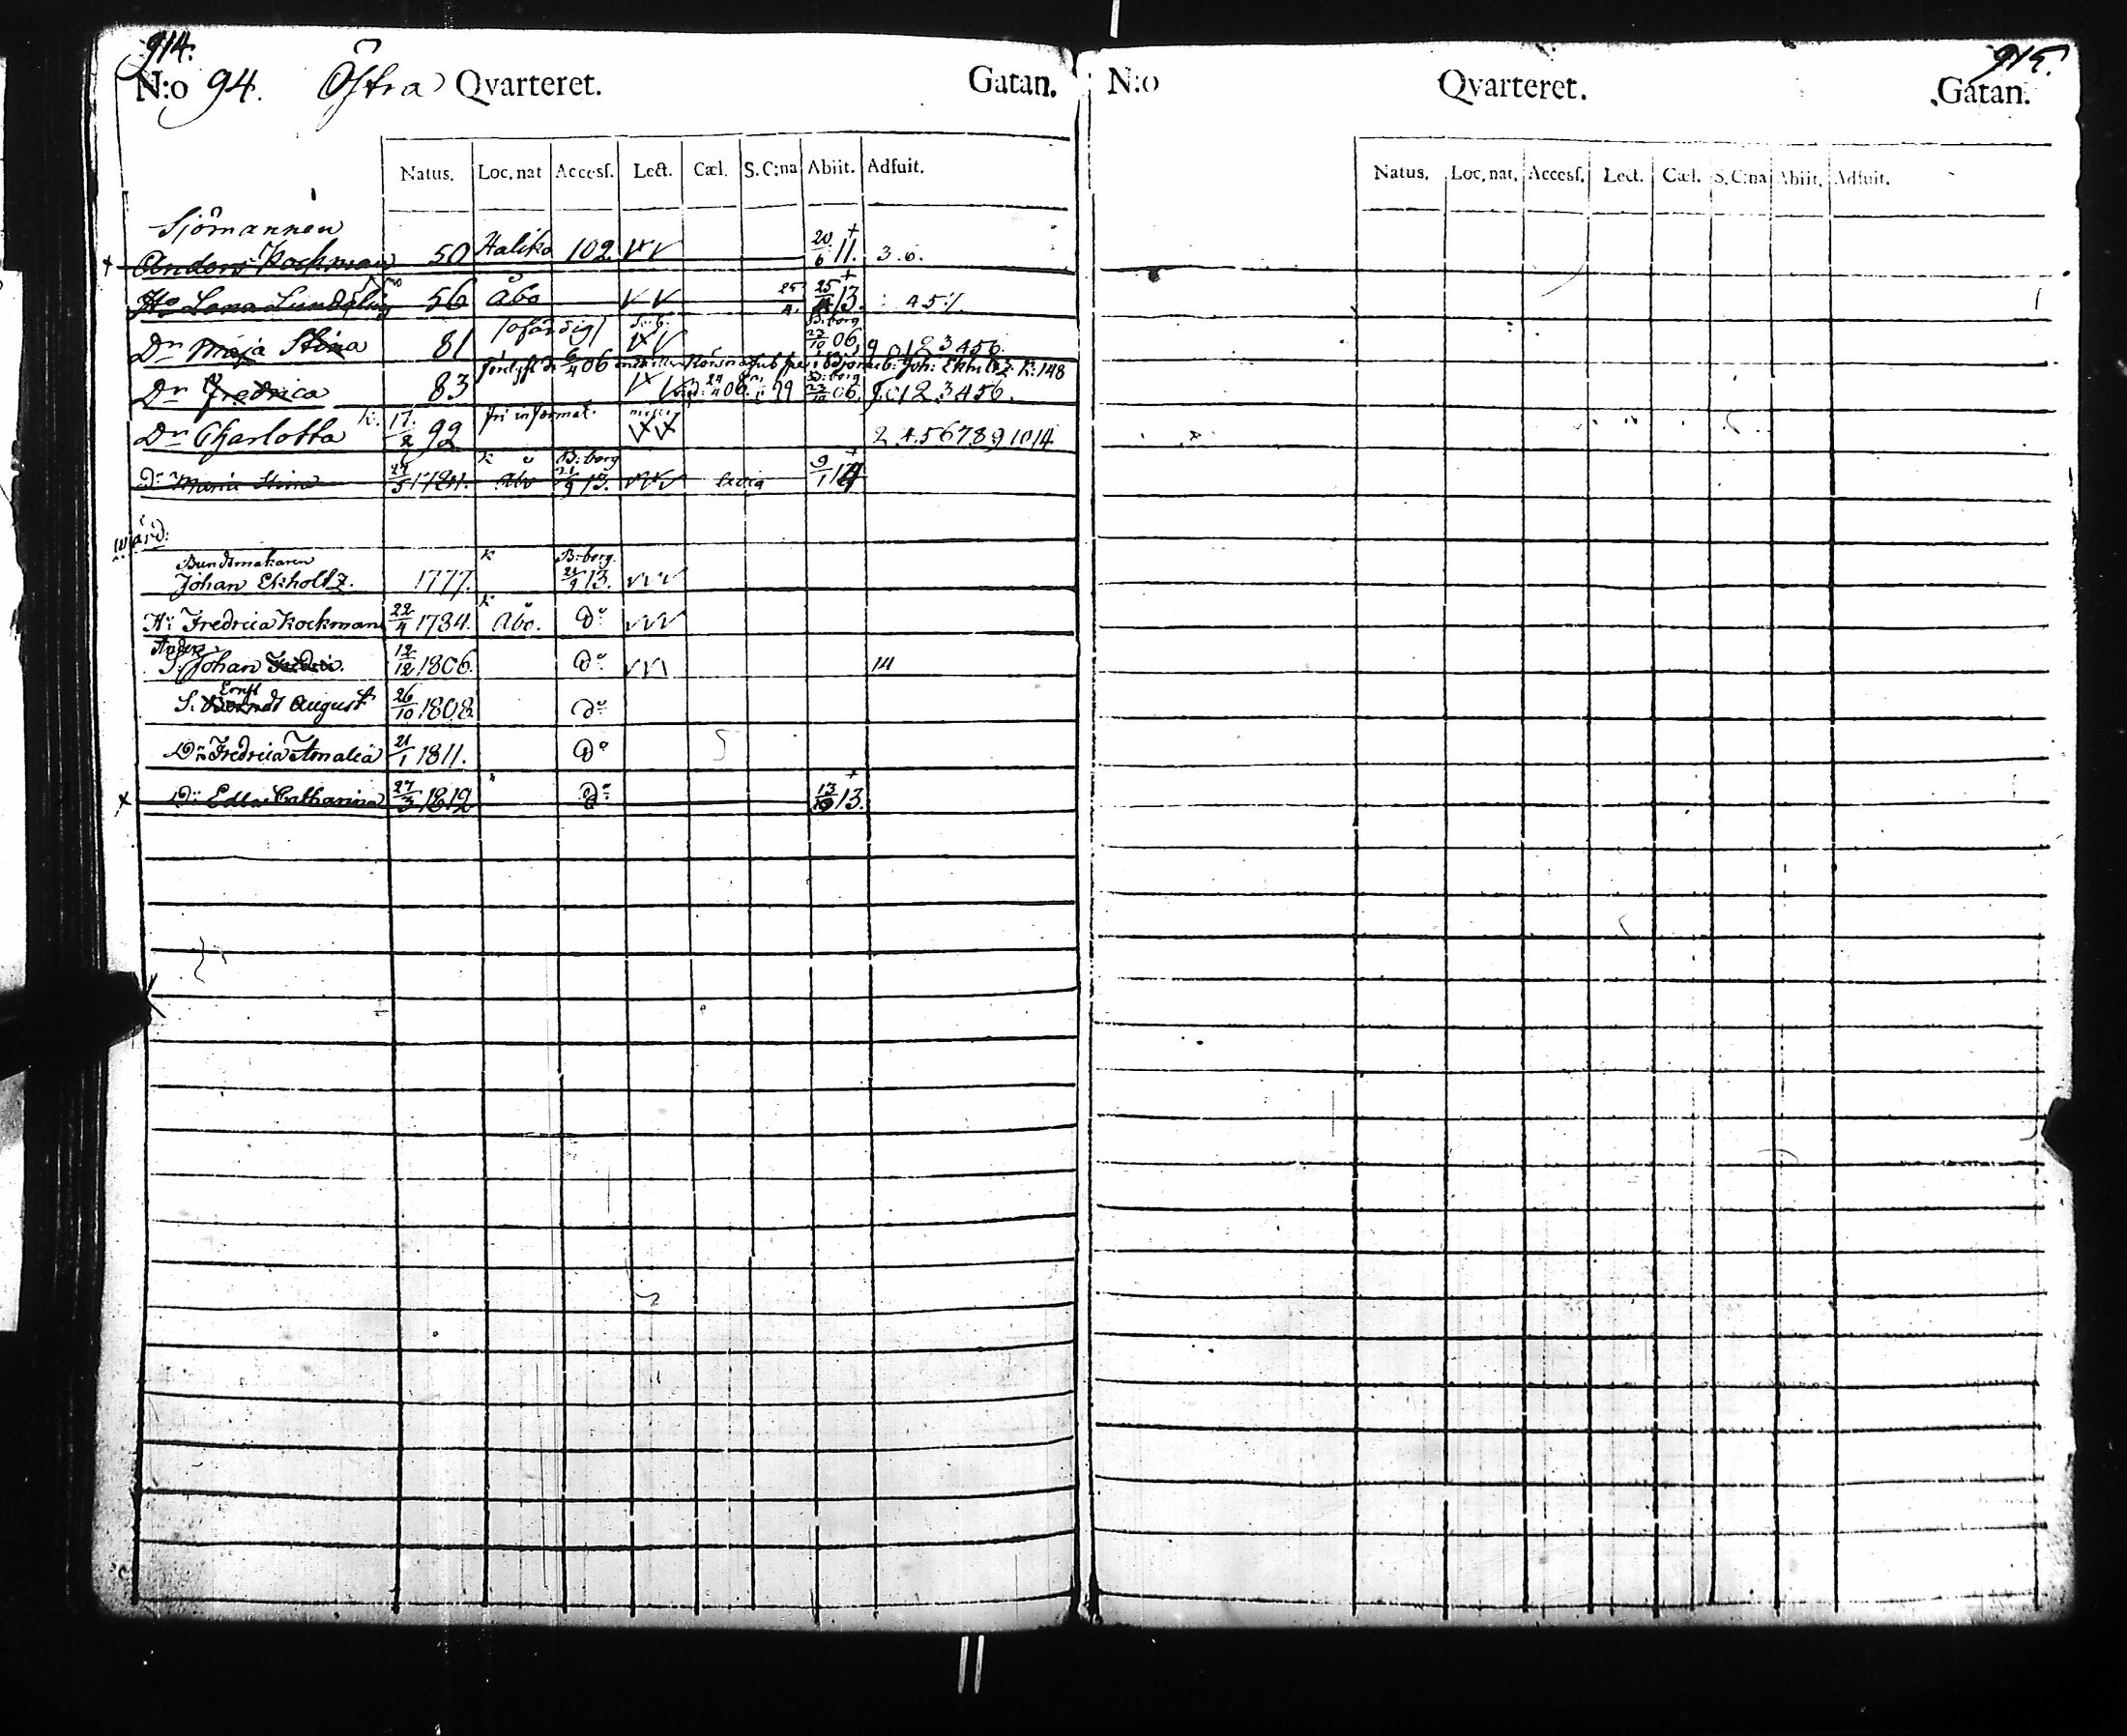 914.
N:o 94. Östra Qvarteret. Gatan.
Natus. Loc. nat Accesſ. Lect. Cæl. S. C:na Abiit. Adfuit.
Sjömannen
Anders Kockman 50 Haliko 102. 20/6 11. + 3. 6.
Ho Lena 56 Åbo 25/4 25/4 13. + 4 5
Dr Maja Stina 81 /ofärdig/ B:borg 23/10 06, 9 0 1 2 3 4 5 6.
06 Joh: Ekholtz K: 148
Dr Fredrica 83 06. 99 B:borg 23/10 06. 9. 0 1 2 3 4 5 6.
Dr Charlotta K: 17/2 92 2 4. 5 6 7 8 9 10 14
Dr Maria Stina 24/5 1784. k Åbo B:borg 21/9 13. 9/1 14 +
wärd:
Bundtmakaren
Johan Ekholtz. 1777. k B:borg. 21/9 13.
Hu Fredrica Kockman 22/4 1784. k Åbo. Do
Anders
S. Johan 12/12 1806. Do 14
Ernst
S. August 26/10 1808. Do
Dr Fredrica Amalia 21/1 1811. Do
Dr Edla Catharina 27/3 1812 Do 13/10 13. +
915.
N:o Qvarteret. Gatan.
Natus. Loc. nat. Accesſ. Lect. Cæl. S. C:na Abiit. Adfuit.